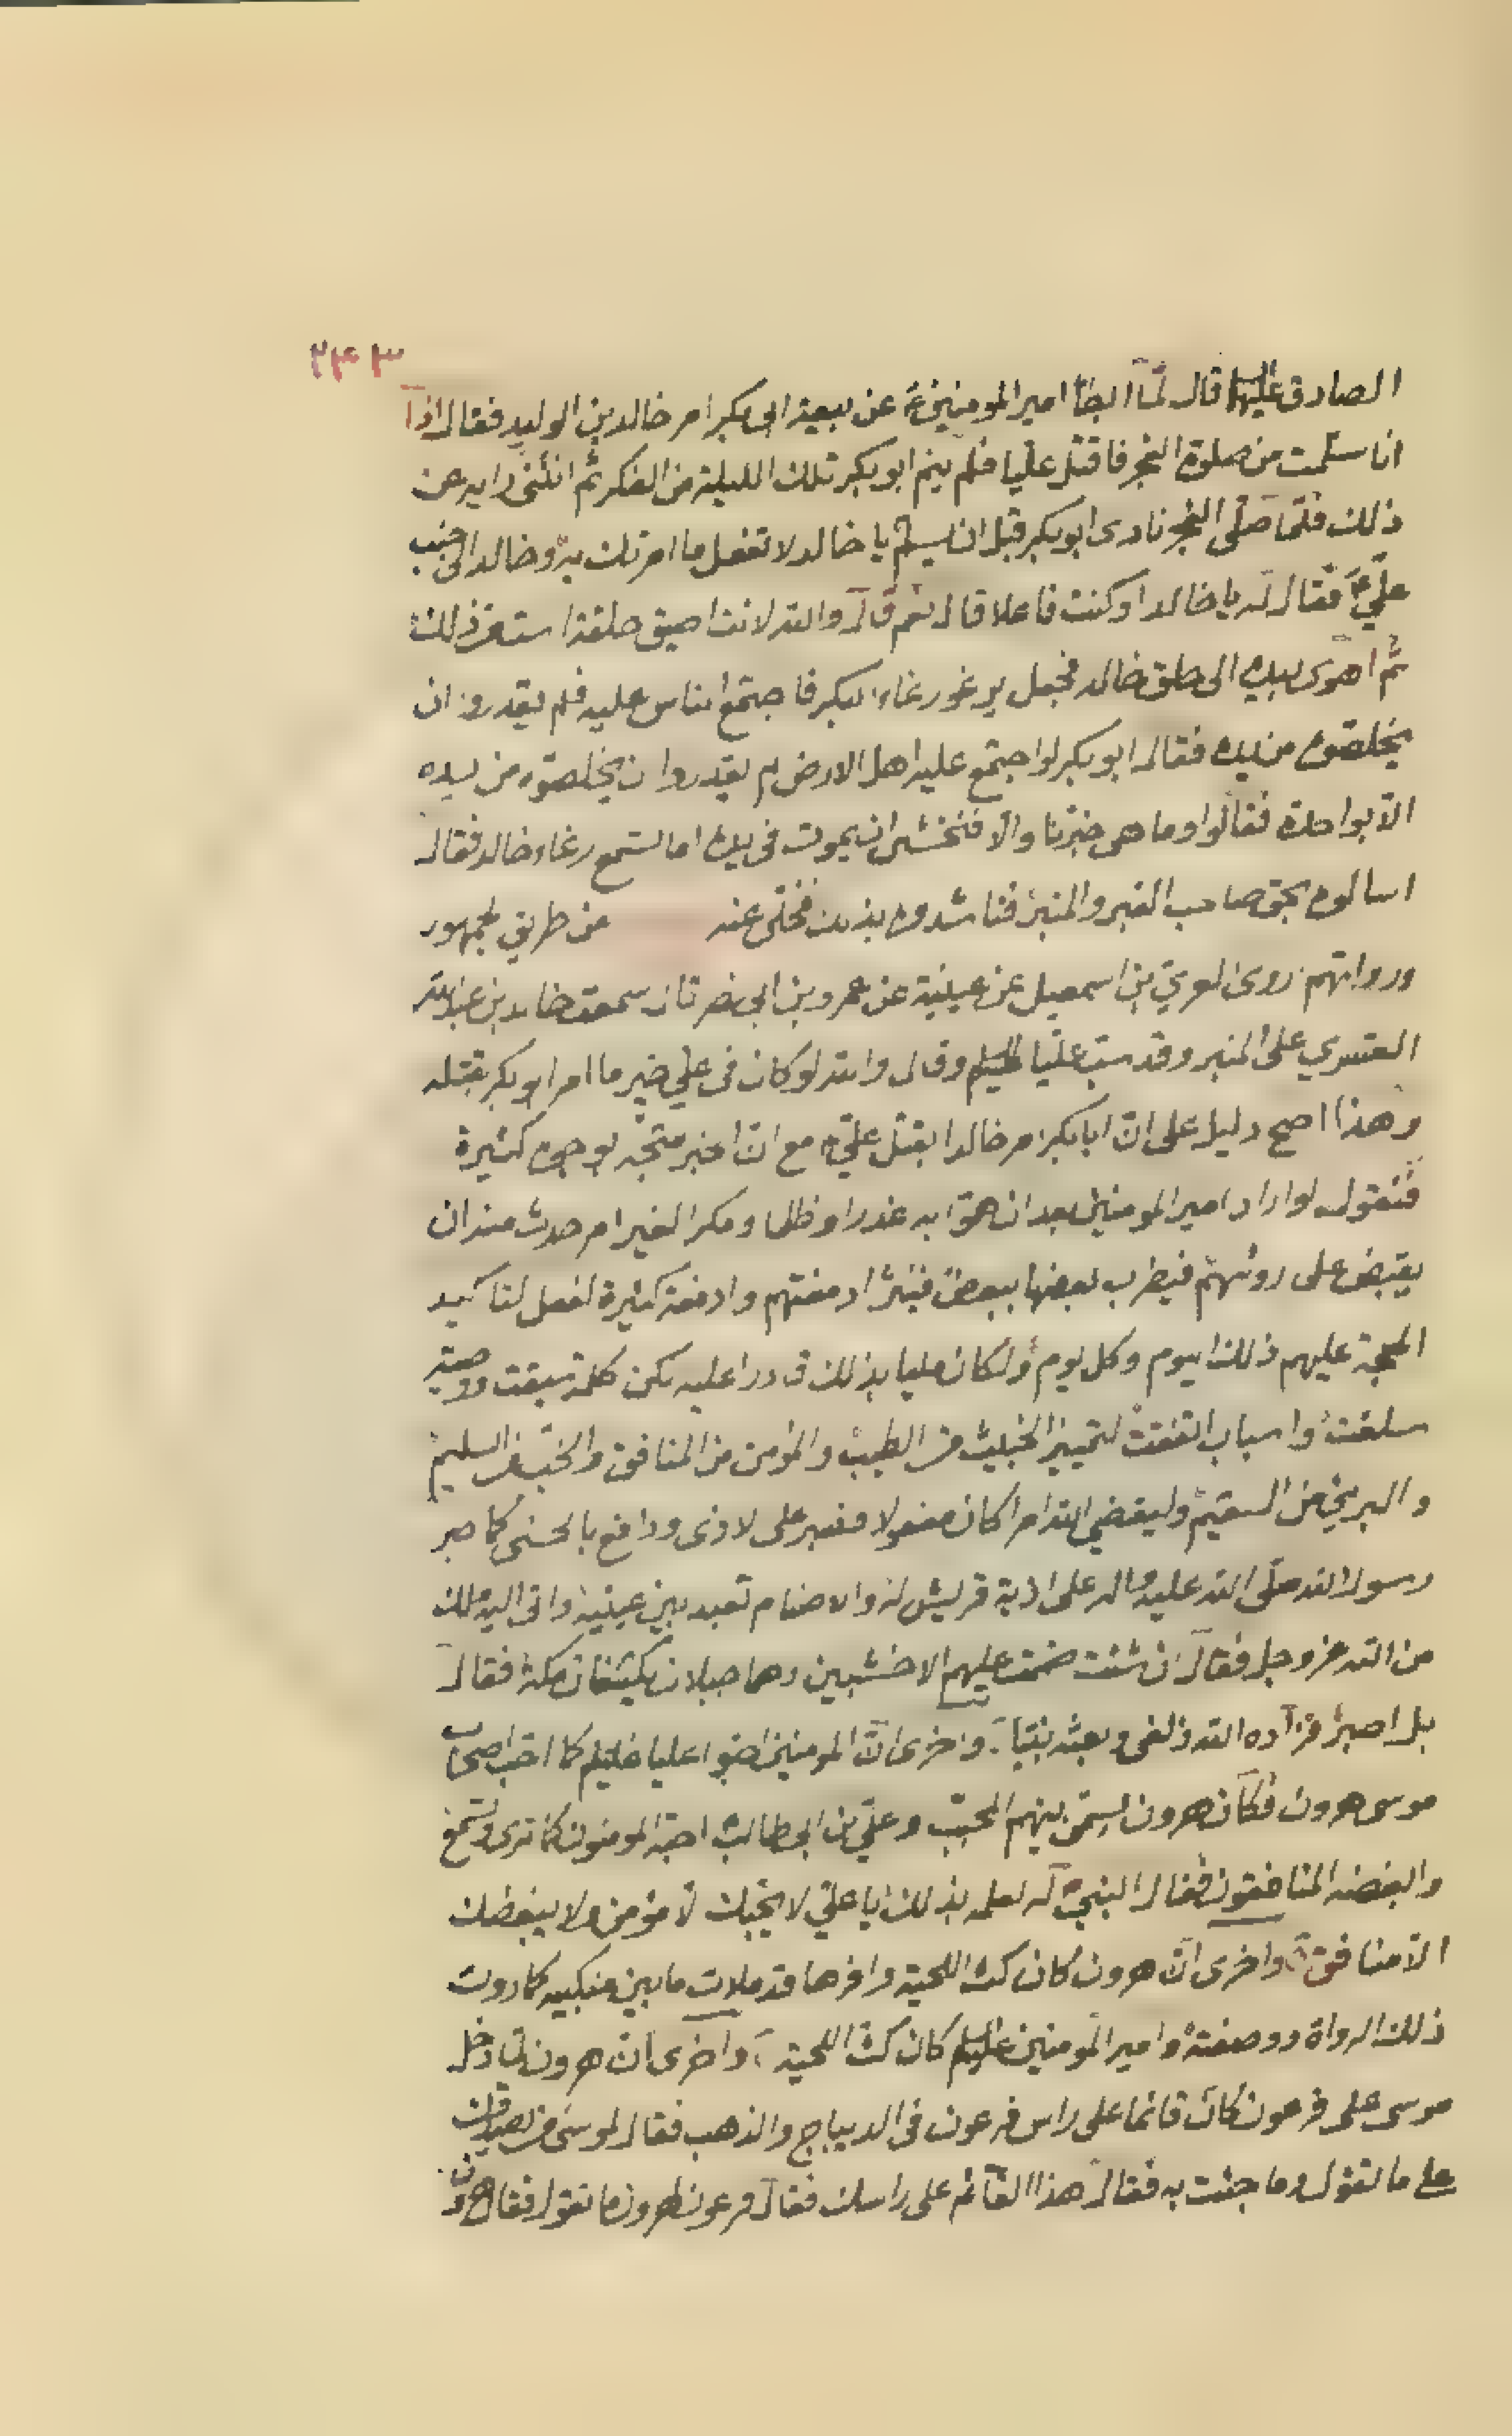 ٢٤٣
الصادق عليه السلام قال لما ابطأ امير المومنين ع عن بيعة ابى بكر امر خالد بن الوليد فقال اذا
انا سلمت من صلوة الفجر فاقتل عليا فلم ينم ابو بكر تلك الليلة من الفكر ثم انثنى رايه عن
ذلك فلما صلى الفجر نادى ابو بكر قبل ان يسلم يا خالد لا تفعل ما امرتك به وخالد الى جنب
علي ع فقال له يا خالد او كنت فاعلا قال نعم قال والله لانت اضيق حلقة است من ذلك
ثم اهوى بيده الى حلق خالد فجعل يرغو رغاء البكر فاجتمع الناس عليه فلم يقدروا ان
يخلصوه من يده فقال ابو بكر لو اجتمع عليه اهل الارض لم يقدروا ان يخلصوه من يده
الا بواحدة فقالوا وما هى خبرنا والا فنخشى ان يموت فى يده اما تسمع رغاء خالد فقال
اسالوه بحق صاحب القبر والمنبر فناشدوه بذلك فخلى عنه من طريق الجمهور
ورواتهم روى بن اسمعيل عن عيينة عن عمرو بن ابى نصر قال سمعت خالد بن عبد الله
القسري على المنبر وقد سب عليا عليه السلم وقال والله لو كان فى علي خير ما امر ابو بكر بقتله
وهذا اصح دليل على ان ابا بكر امر خالدا بقتل علي ع مع ان الخبر متجه بوجوه كثيرة
فنقول لو اراد امير المومنين بعد ان هموا به غدرا وظلما ومكرا لغير امر حدث منه ان
يقبض على روسهم فيضرب بعضها ببعض فينثر ادمغتهم وادمغة كثيرة لفعل لتاكيد
الحجة عليهم ذلك اليوم وكل يوم ولكان مليا بذلك قادرا عليه لكن كلمة سبقت ووصية
سلفت واسباب اتفقت لتمييز الخبيث من الطيب والمؤمن من المنافق والخب من السليم
والبريئ من السقيم وليقضي الله امرا كان مفعولا فصبر على الاذى ودافع بالحسنى كما صبر
رسول الله صلى الله عليه واله على اذية قريش له والاصنام تعبد بين عينيه واتى اليه ملك
من الله عز وجل فقال ان شئت ضممت عليهم الاخشبين وهما جبلان يكتنفان مكة فقال
بل اصبر فزاده الله زلفى وبعثه نبيا واخرى ان المومنين احبوا عليا عليه السلم كما احب اصحاب
موسى هرون فكان هرون يسمى بينهم المحبب وعلي بن ابى طالب احبه المومنون كما ترى وتسمع
وابغضه المنافقون فقال النبى له لعلمه بذلك يا علي لا يحبك الا مؤمن ولا يبغضك
الا منافق واخرى ان هرون كان كث اللحية وافرها قد ملات ما بين منكبيه كما روت
ذلك الرواة ووصفته وامير المومنين عليه السلم كان كث اللحية واخرى ان هرون لما دخل
موسى على فرعون كان قائما على راس فرعون فى الديباج والذهب فقال لموسى من يصدقك
على ما تقول وما جئت به فقال هذا القائم على راسك فقال فرعون لهرون ما تقول فقال هرون